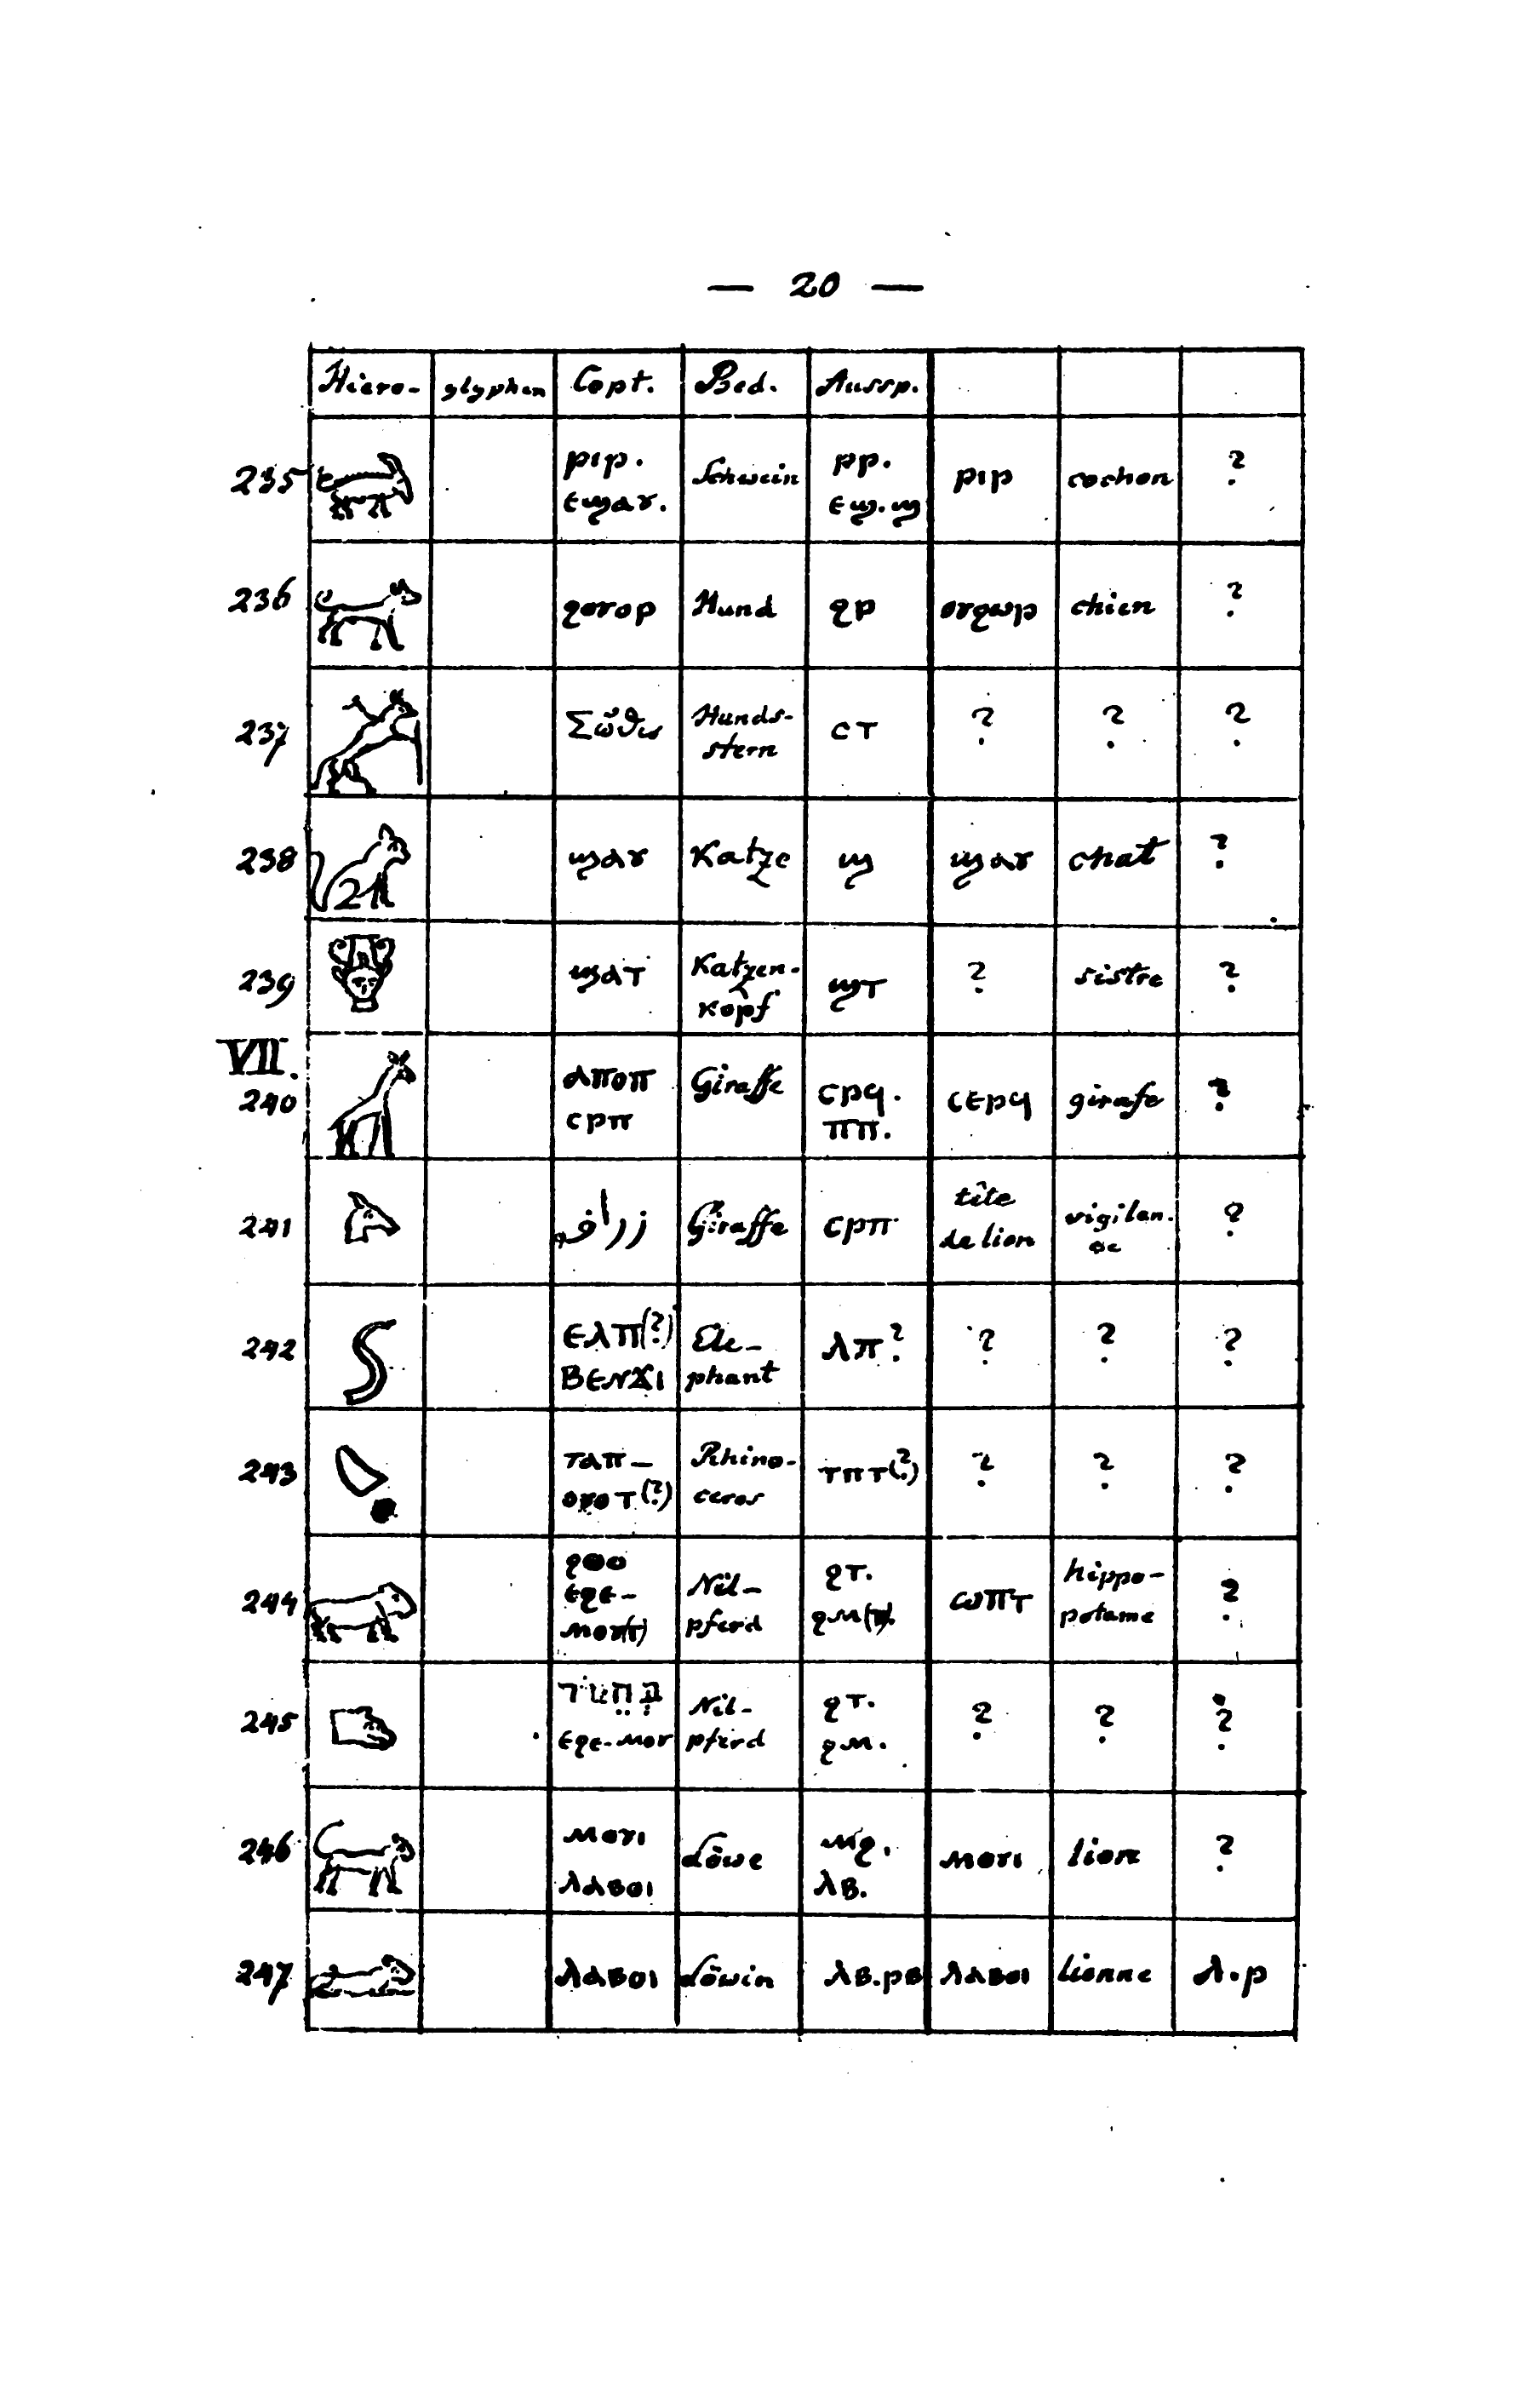 — 20 —
Hiero- glyphen Copt. Bed. Aussp.
235 ⲣⲓⲣ. ⲉϣⲁⲩ. Schwein ⲣⲣ. ⲉϣ.ϣ ⲣⲓⲣ cochon ?
236 ϩⲟⲩⲟⲣ Hund ϩⲣ ⲟⲩϩⲱⲣ chien ?
237 Σῶθις Hunds- stern ⲥⲧ ? ? ?
238 ϣⲁⲩ Katze ϣ ϣⲁⲩ chat ?
239 ϣⲁⲧ Katzen- kopf ϣⲧ ? sistre ?
VII.
240 ⲁⲡⲟⲡ ⲥⲣⲡ Giraffe ⲥⲣϥ. ⲡⲡ. ⲥⲉⲣϥ girafe ?
241 زرافه Giraffe ⲥⲣⲡ tête de lion vigilan. ce ?
242 ⲉⲗⲡ(?) ⲃⲉⲛϫⲓ Ele- phant ⲗⲡ? ? ? ?
243 ⲧⲁⲡ- ⲟⲩⲟⲧ(?) Rhino- ceros ⲧⲡⲧ(?) ? ? ?
244 ϩⲑⲟ ⲉϩⲉ- ⲙⲟⲩ(ⲧ) Nil- pferd ϩⲧ. ⲱⲡⲧ hippo- potame ?
245 ⲉϩⲉ-ⲙⲟⲩ Nil- pferd ϩⲧ. ϩⲙ. ? ? ?
246 ⲙⲟⲩⲓ ⲗⲁⲃⲟⲓ Löwe ⲙϩ. ⲗⲃ. ⲙⲟⲩⲓ lion ?
247 ⲗⲁⲃⲟⲓ Löwin ⲗⲃ.ⲣⲃ ⲗⲁⲃⲟⲓ lionne ⲗ.ⲣ